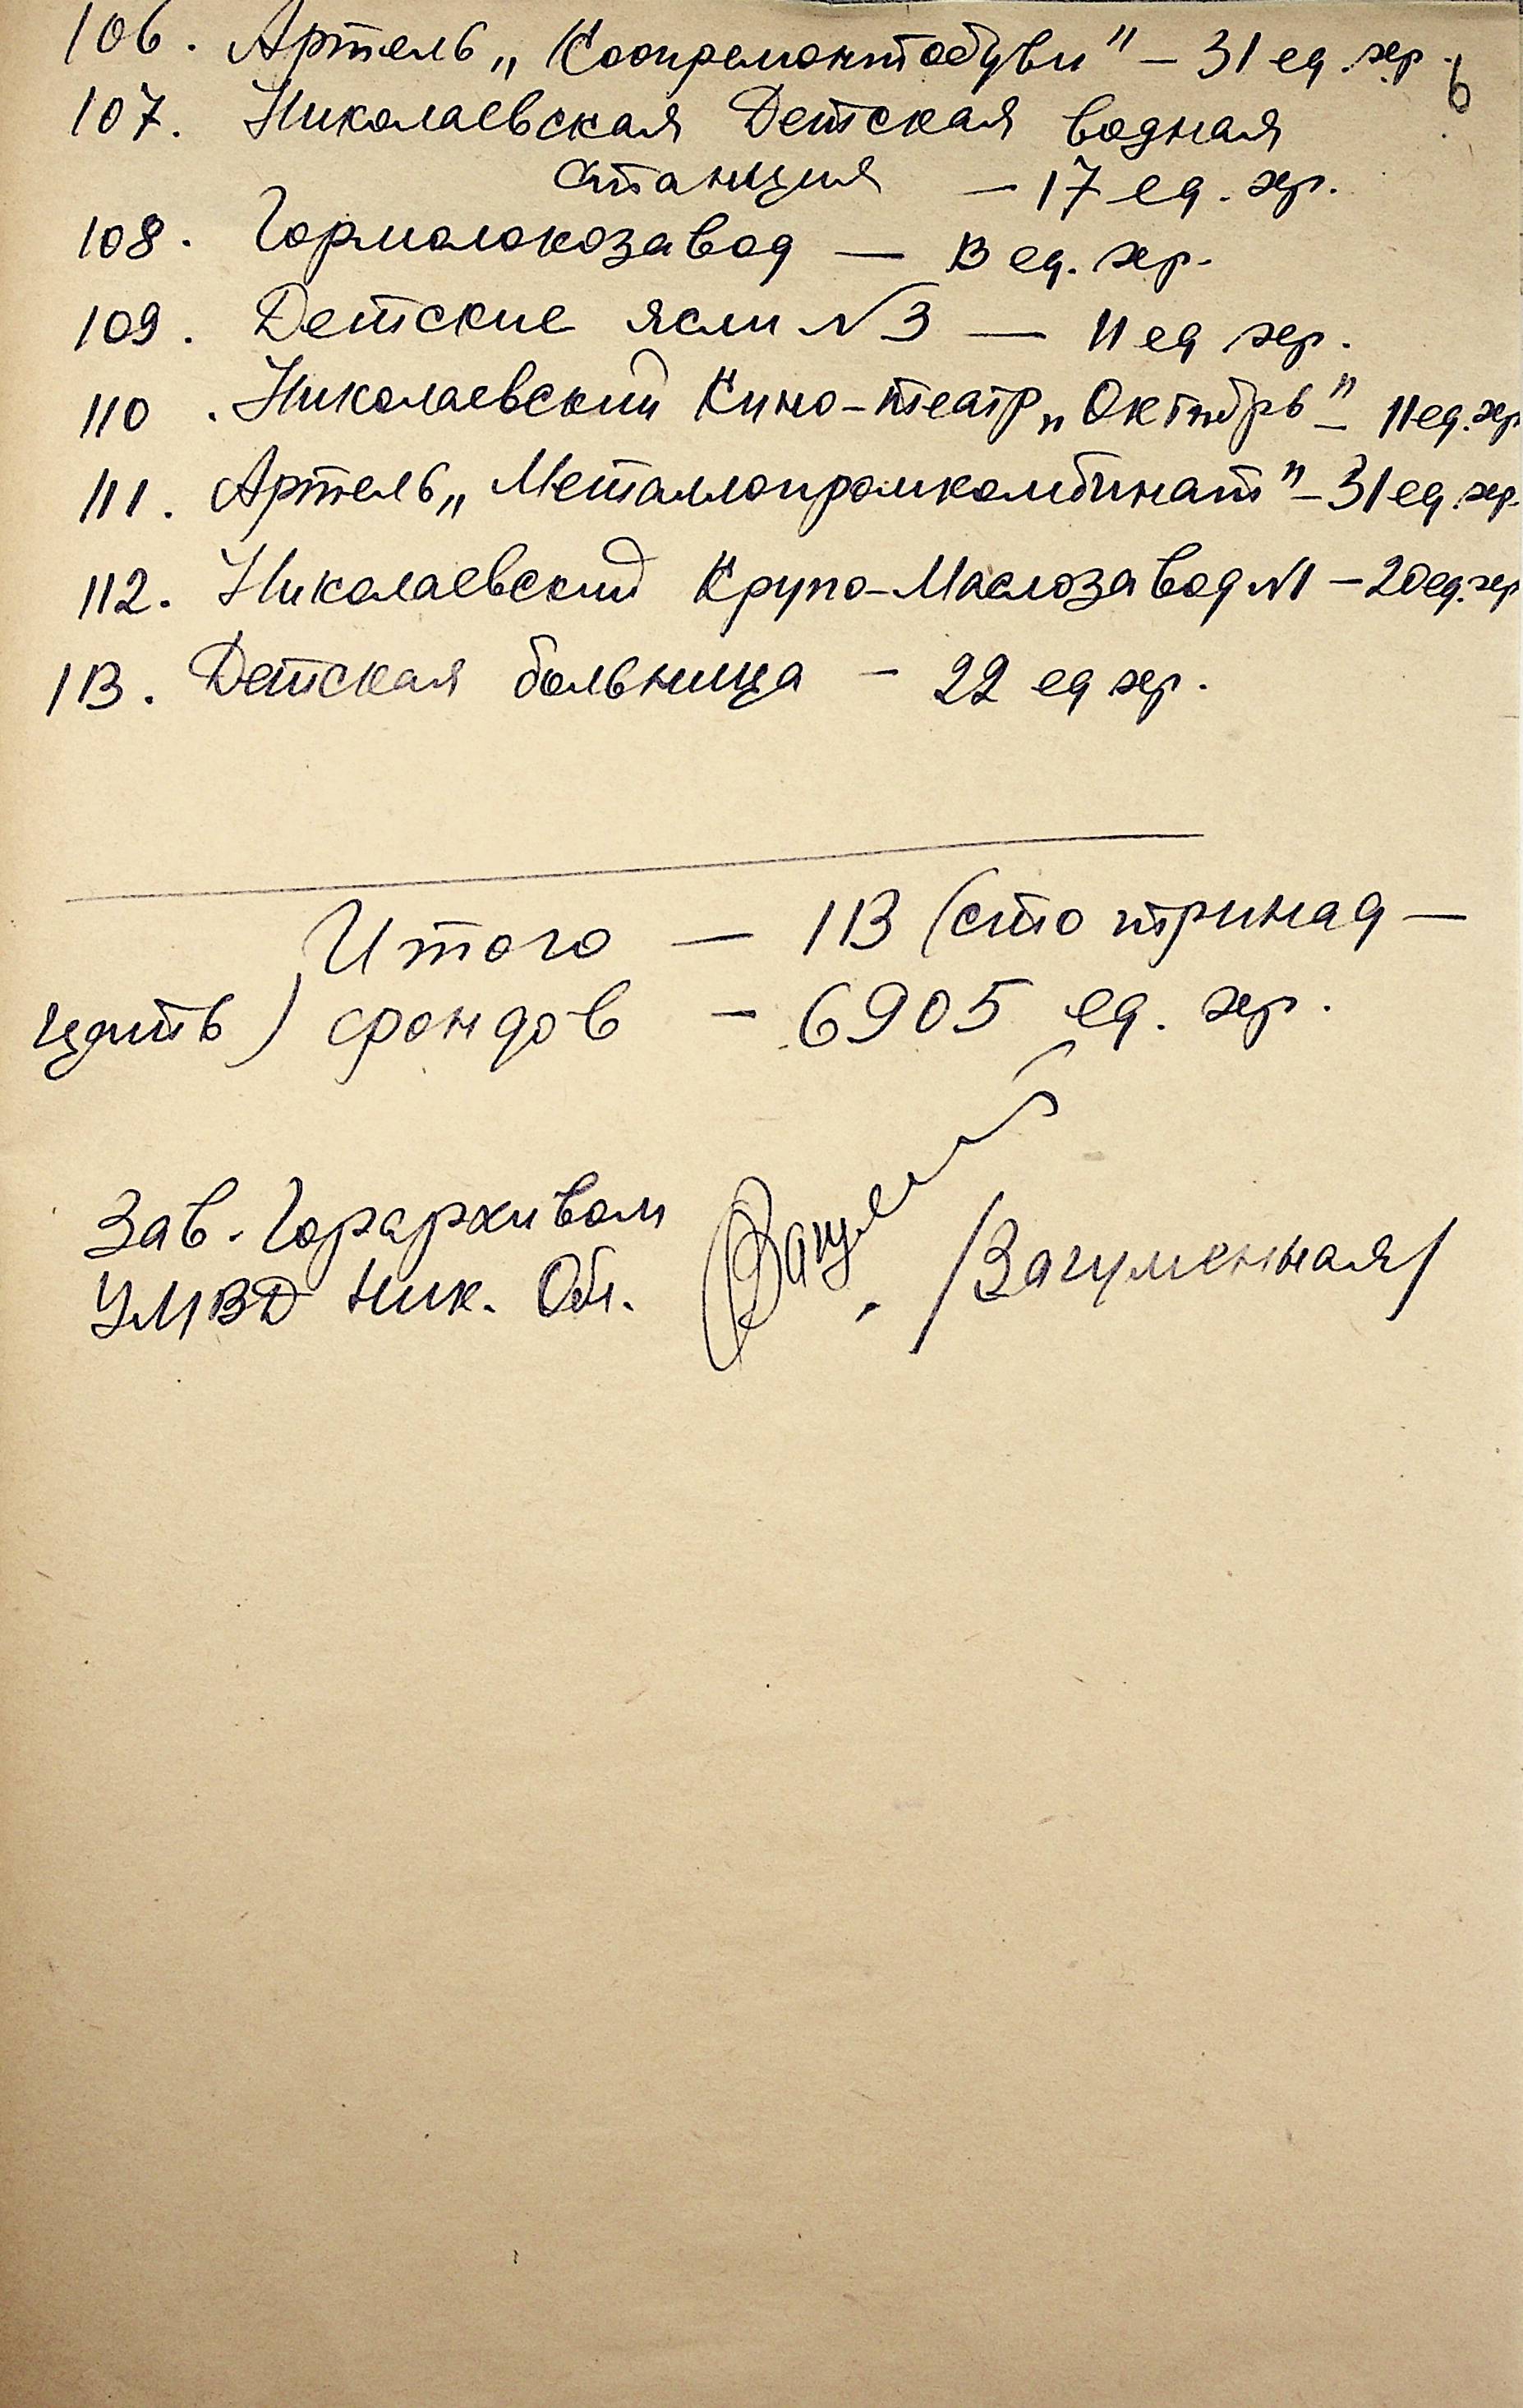 106. Артель „Коопремонтобуви" – 31 ед. хр.
6
107. Николаевская Детская водная
станция – 17 ед. хр.
108. Гормолокозавод – 13 ед. хр.
109. Детские ясли N 3 – 11 ед хр.
110. Николаевский Кино-театр „Октябрь" – 11 ед. хр
111. Артель „Металлопромкомбинат" – 31 ед. хр.
112. Николаевский Крупо-Маслозавод N1 – 20 ед. хр
113. Детская больница – 22 ед хр.
Итого – 113 (сто тринад–
цать) фондов – 6905 ед. хр.
Зав. Горархивом
УМВД Ник. Обл. /Загуменная/